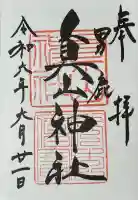 奉拝
男鹿
真山神社
令和六年九月廿一日